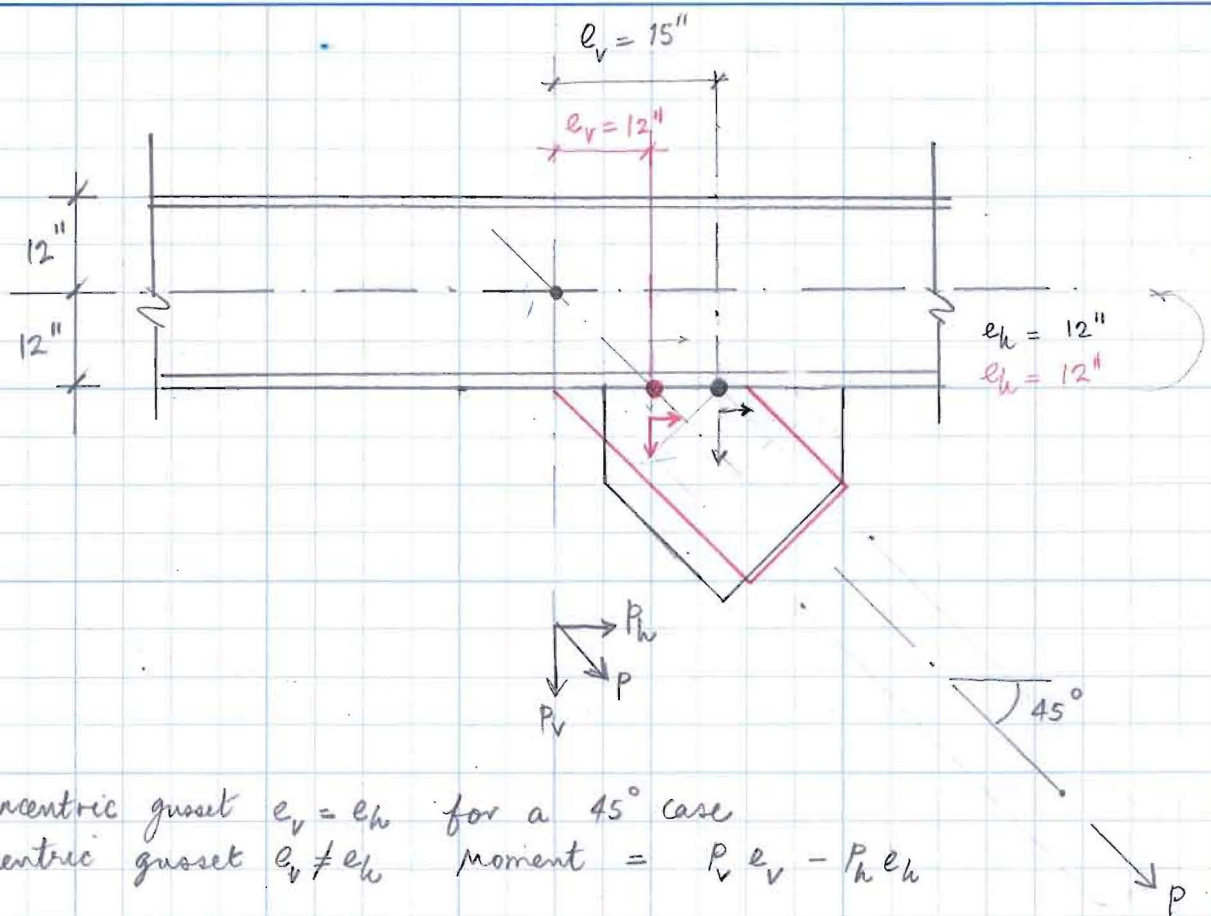 e_v = 15"
e_v = 12"
12"
12"
e_h = 12"
e_h = 12"
P_h
P
P_v
45°
ncentric gusset e_v = e_h for a 45° case
entric gusset e_v ≠ e_h Moment = P_v e_v - P_h e_h
P